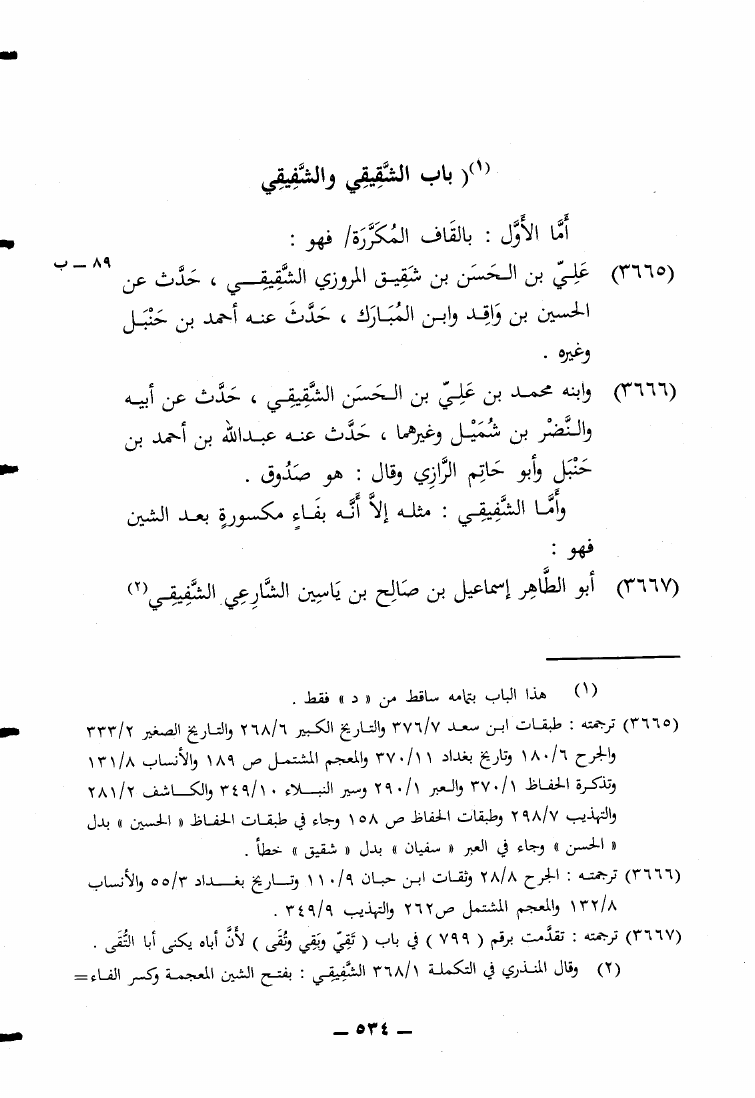 (١)( باب الشَّقِيقِي والشَّفِيقِي
أَمَّا الأَوَّل : بالقَاف المُكَرَّرَة/ فهو :
٨٩ – ب
(٣٦٦٥) عَلِيّ بن الحَسَن بن شَقِيق المروزي الشَّقِيقِي ، حَدَّث عن
الحسين بن وَاقِد وابن المُبَارَك ، حَدَّثَ عنه أحمد بن حَنْبَل
وغيره .
(٣٦٦٦) وابنه محمد بن عَلِيّ بن الحَسَن الشَّقِيقِي ، حَدَّث عن أبيه
والنَّضْر بن شُمَيْل وغيرهما ، حَدَّث عنه عبدالله بن أحمد بن
حَنْبَل وأبو حَاتِم الرَّازِي وقال : هو صَدُوق .
وأَمَّا الشَّفِيقِي : مثله إلاَّ أَنَّه بفَاءٍ مكسورةٍ بعد الشين
فهو :
(٣٦٦٧) أبو الطَّاهِر إسماعيل بن صَالِح بن يَاسِين الشَّارِعِي الشَّفِيقِي(٢)
(١) هذا الباب بتمامه ساقط من « د » فقط .
(٣٦٦٥) ترجمته : طبقات ابن سعد ٣٧٦/٧ والتاريخ الكبير ٢٦٨/٦ والتاريخ الصغير ٣٣٣/٢
والجرح ١٨٠/٦ وتاريخ بغداد ٣٧٠/١١ والمعجم المشتمل ص ١٨٩ والأنساب ١٣١/٨
وتذكرة الحفاظ ٣٧٠/١ والعبر ٢٩٠/١ وسير النبلاء ٣٤٩/١٠ والكاشف ٢٨١/٢
والتهذيب ٢٩٨/٧ وطبقات الحفاظ ص ١٥٨ وجاء في طبقات الحفاظ « الحسين » بدل
« الحسن » وجاء في العبر « سفيان » بدل « شقيق » خطأ .
(٣٦٦٦) ترجمته : الجرح ٢٨/٨ وثقات ابن حبان ١١٠/٩ وتاريخ بغداد ٥٥/٣ والأنساب
١٣٢/٨ والمعجم المشتمل ص٢٦٢ والتهذيب ٣٤٩/٩ .
(٣٦٦٧) ترجمته : تقدَّمت برقم ( ٧٩٩ ) في باب ( تَقِيّ وبَقِي وتُقَى ) لأنَّ أباه يكنى أبا التُّقَى .
(٢) وقال المنذري في التكملة ٣٦٨/١ الشَّفِيقِي : بفتح الشين المعجمة وكسر الفاء=
— ٥٣٤ —